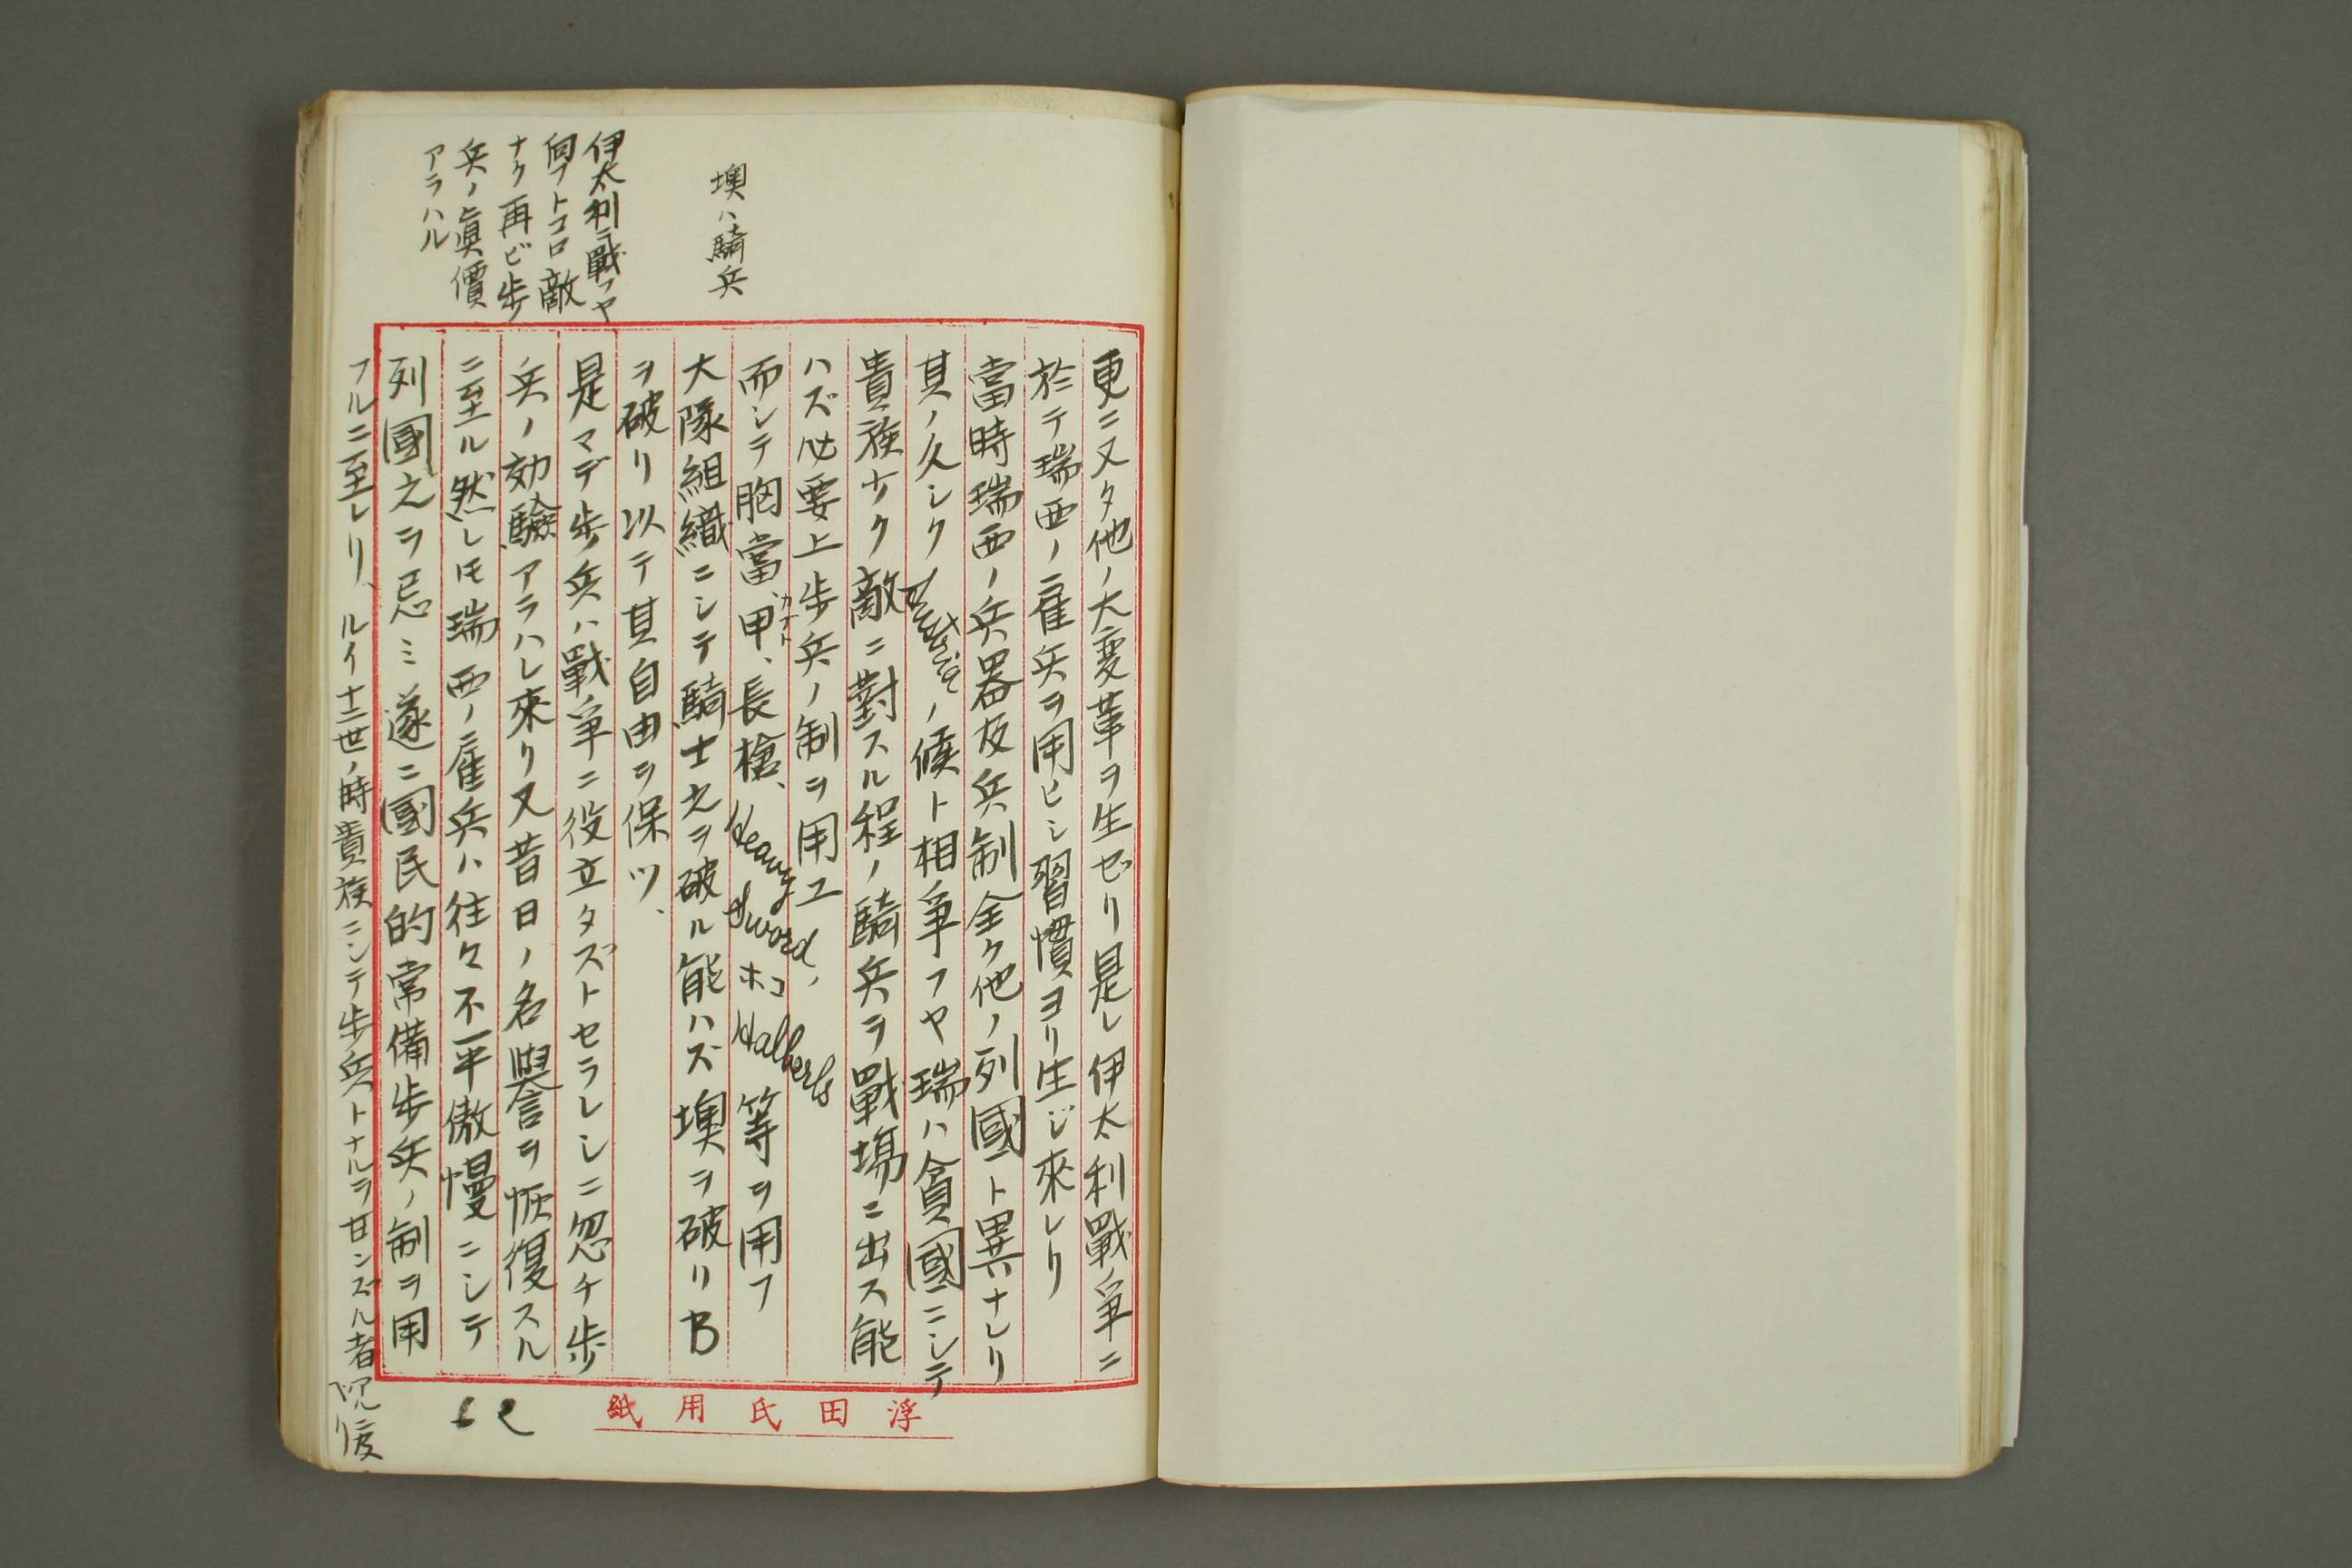 更ニ又タ他ノ大変革ヲ生ゼリ是レ伊太利戰爭ニ
於テ瑞西ノ雇兵ヲ用ヒシ習慣ヨリ生ジ來レリ
當時瑞西ノ兵器及兵制全ク他ノ列國ト異ナレリ
其ノ久シク ノ候ト相爭フヤ瑞ハ貧國ニシテ
貴族少ク敵ニ對スル程ノ騎兵ヲ戰場ニ出ス能
ハズ必要上歩兵ノ制ヲ用ユ
而シテ胸當、甲、長槍、Heavy Sword, ホコ Halberts 等ヲ用フ
カブト
大隊組織ニシテ騎士之ヲ破ル能ハズ墺ヲ破リB
ヲ破リ以テ其自由ヲ保ツ、
墺ハ騎兵
是マデ歩兵ハ戰爭ニ役立タズトセラレシニ忽チ歩
兵ノ効驗アラハレ來リ又昔日ノ名譽ヲ恢復スル
ニ至ル然レ𪜈瑞西ノ雇兵ハ往々不平傲慢ニシテ
列國之ヲ忌ミ遂ニ國民的常備歩兵ノ制ヲ用
フルニ至レリ、ルイ十二世ノ時貴族ニシテ歩兵トナルヲ甘ンズル者
伊太利ニ戰フヤ
向フトコロ敵
ナク再ビ歩
兵ノ眞價
アラハル
浮田氏用紙